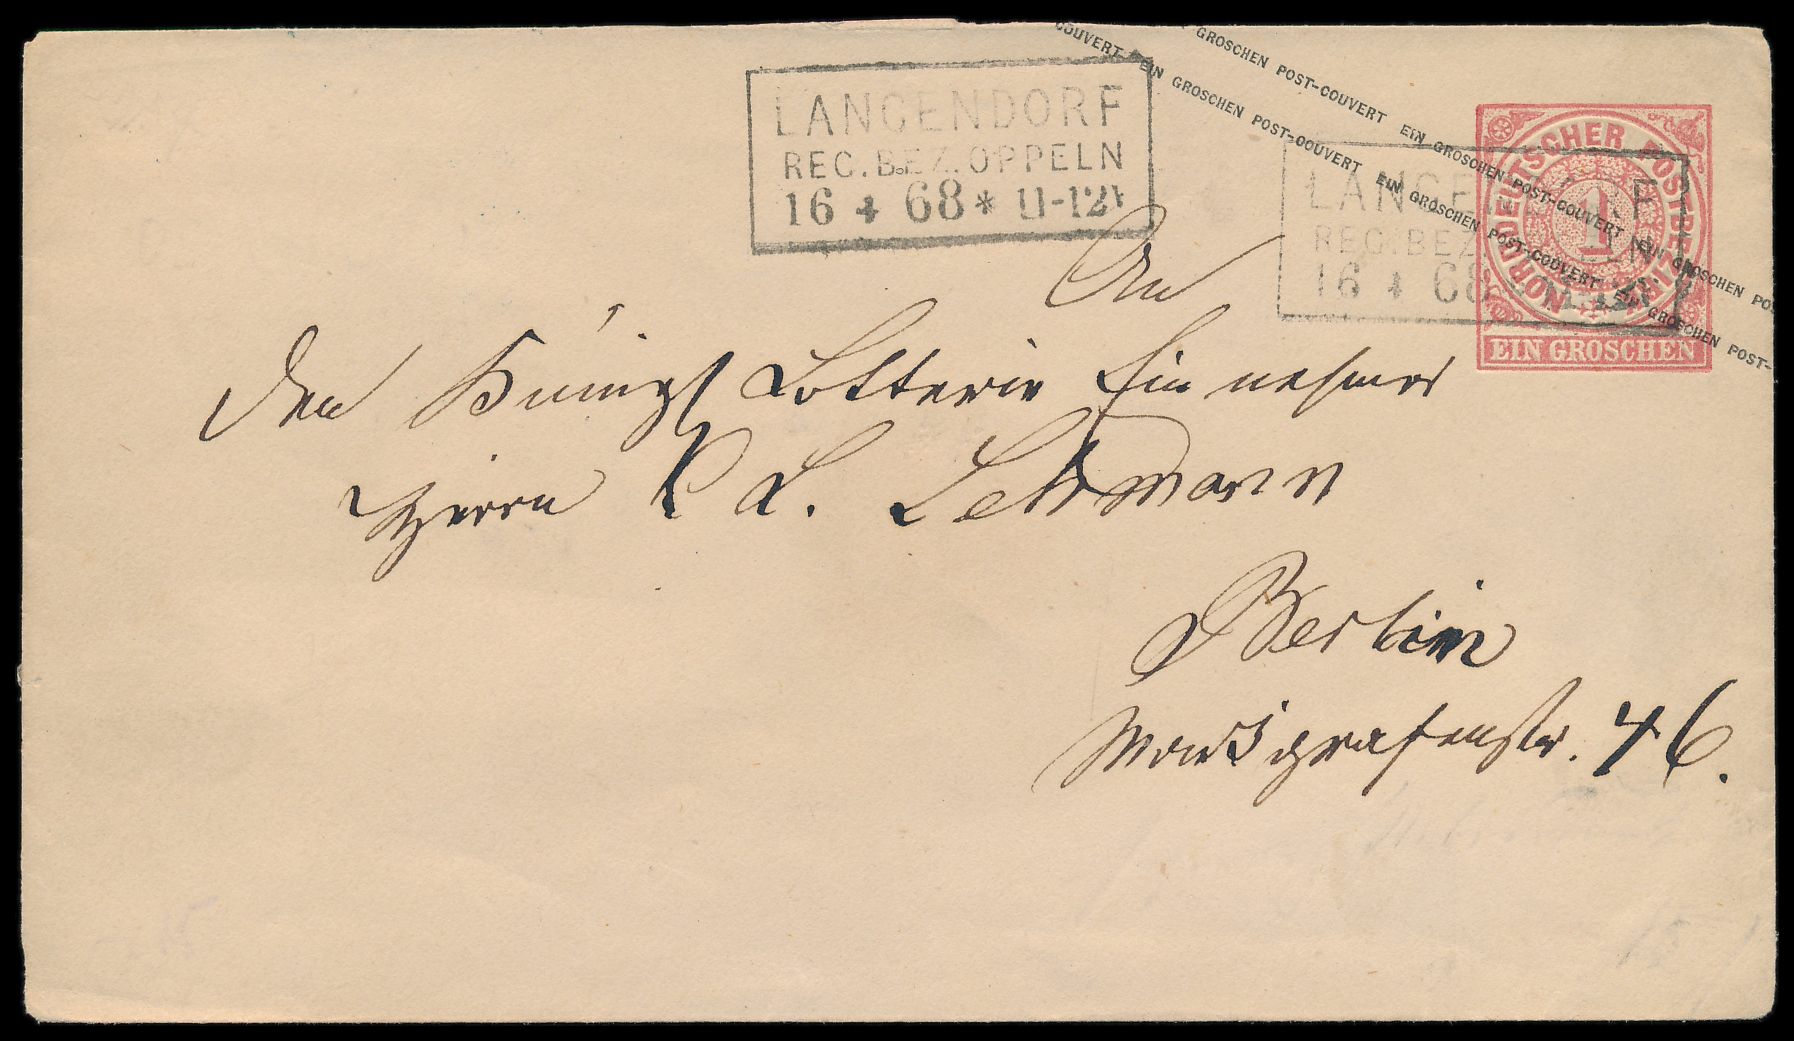 COUVERT EIN GROSCHEN POST-COUVERT EIN GROSCHEN POST-COUVERT EIN GROSCHEN POST-
GROSCHEN POST-COUVERT EIN GROSCHEN POST-COUVERT EIN GROSCHEN PO
LANGENDORF
REG.BEZ.OPPELN
16 4 68 * 11-12V
NORDDEUTSCHER POSTBEZIRK
1
EIN GROSCHEN
LANGE F
REG.BEZ LN
16 4 68
An
den Königl Lotterie Einnehmer
Herrn L. Lehmann
Berlin
Markgrafenstr. 46.